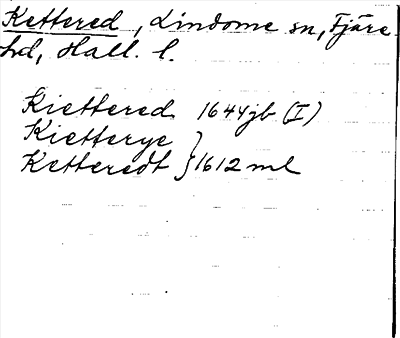 Kettered, Lindome sn, Fjäre
hd, Hall. l.
Kiettered 1644 jb (I)
Kietterye
Ketteredt } 1612 ml